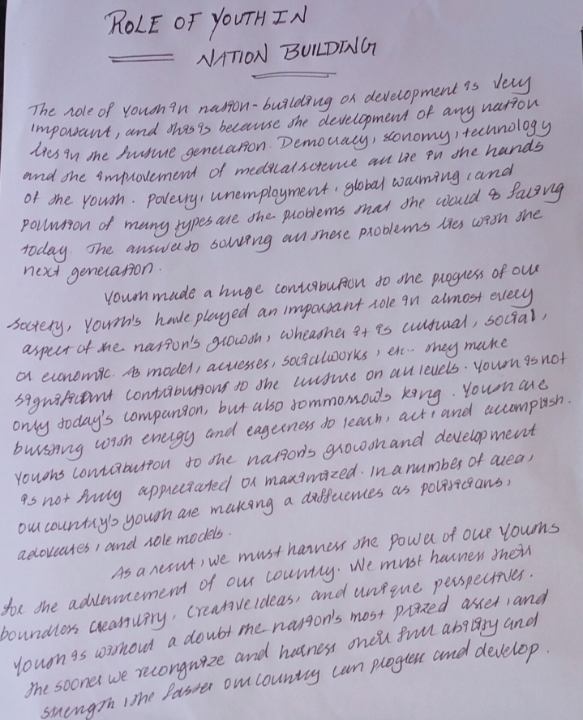 ROLE OF YOUTH IN
NATION BUILDING
The role of youth in nation-building or development is very
important, and this is because the development of any nation
lies in the future generation. Democracy, economy, technology
and the improvement of medical science all lie in the hands
of the youth. Poverty, unemployment, global warming, and
pollution of many types are the problems that the world is facing
today. The answer to solving all these problems lies with the
next generation.
Youth made a huge contribution to the progress of our
society, Youth's have played an important role in almost every
aspect of the nation's growth, wheather it is cultural, social,
or economic. As model, actresses, socialworks, etc.. they make
significant contributions to the culture on all levels. Youth is not
only today's companion, but also tommorow's king. Youth are
bursting with energy and eagerness to learn, act, and accomplish.
Youths contribution to the nation's growth and development
is not fully appreciated or maximized. In a number of area,
our country's youth are making a differences as politicians,
advocates, and role models.
As a result, we must harness the power of our youths
for the advancement of our country. We must harness their
boundless creativity, creative ideas, and unique perspectives.
Youth is without a doubt the nation's most prized asset, and
the sooner we recongnize and harness their full ability and
strength, the faster our country can progress and develop.